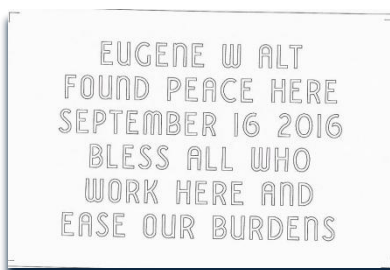 EUGENE W ALT
FOUND PEACE HERE
SEPTEMBER 16 2016
BLESS ALL WHO
WORK HERE AND
EASE OUR BURDENS